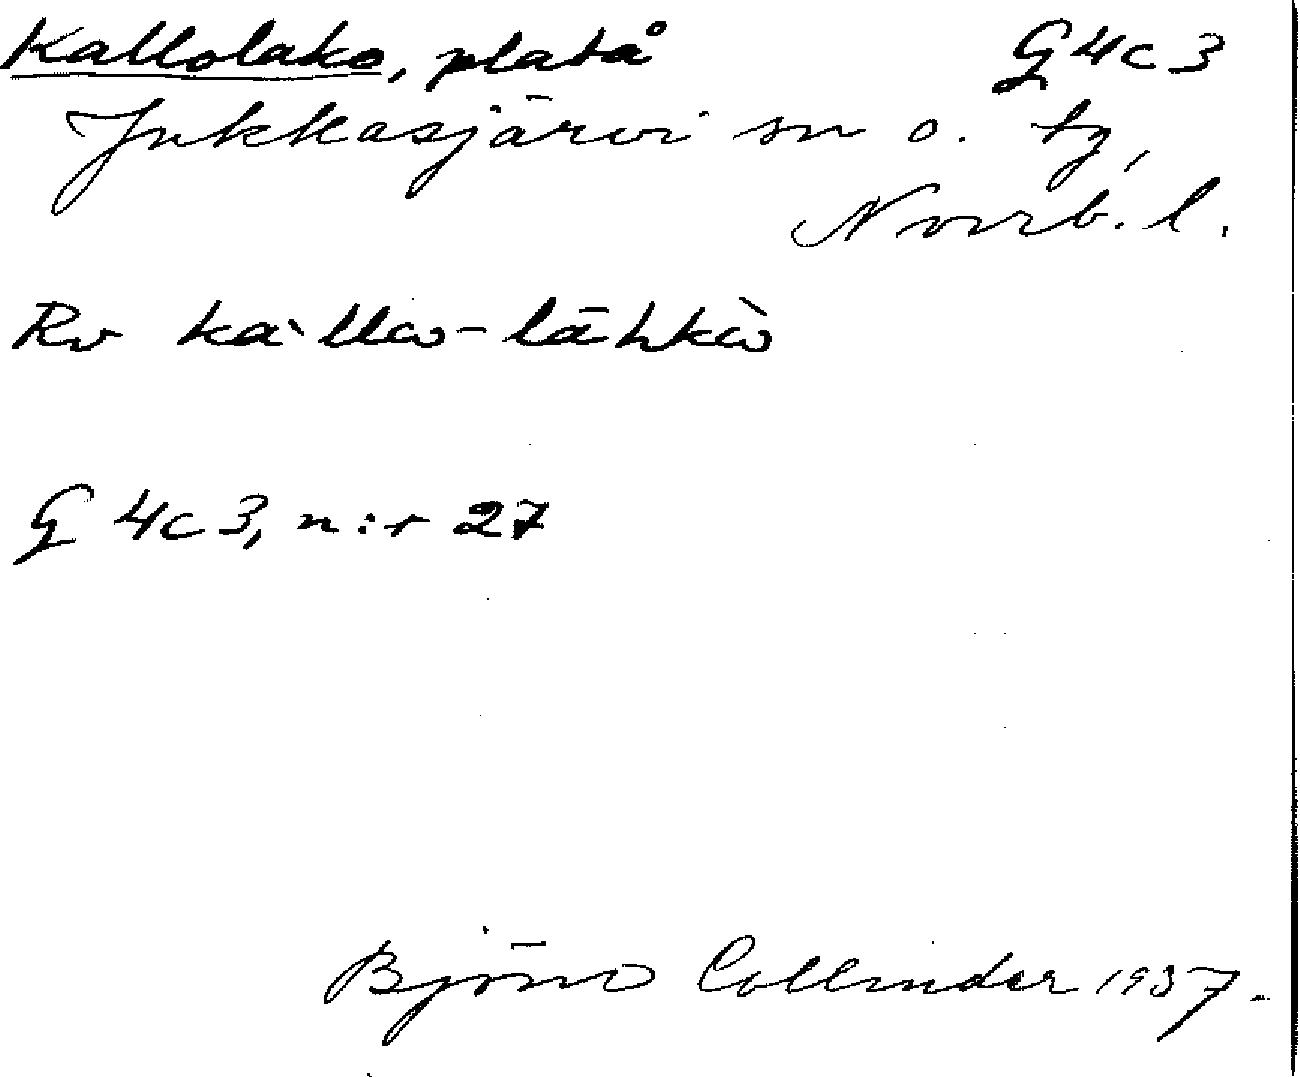 Kallolako, platå G 4 c 3
Jukkasjärvi sn o. tg,
Norrb. l.
Rv kàllω-lāhkὼ
G 4 c 3, n:r 27
Björn Collinder 1937.